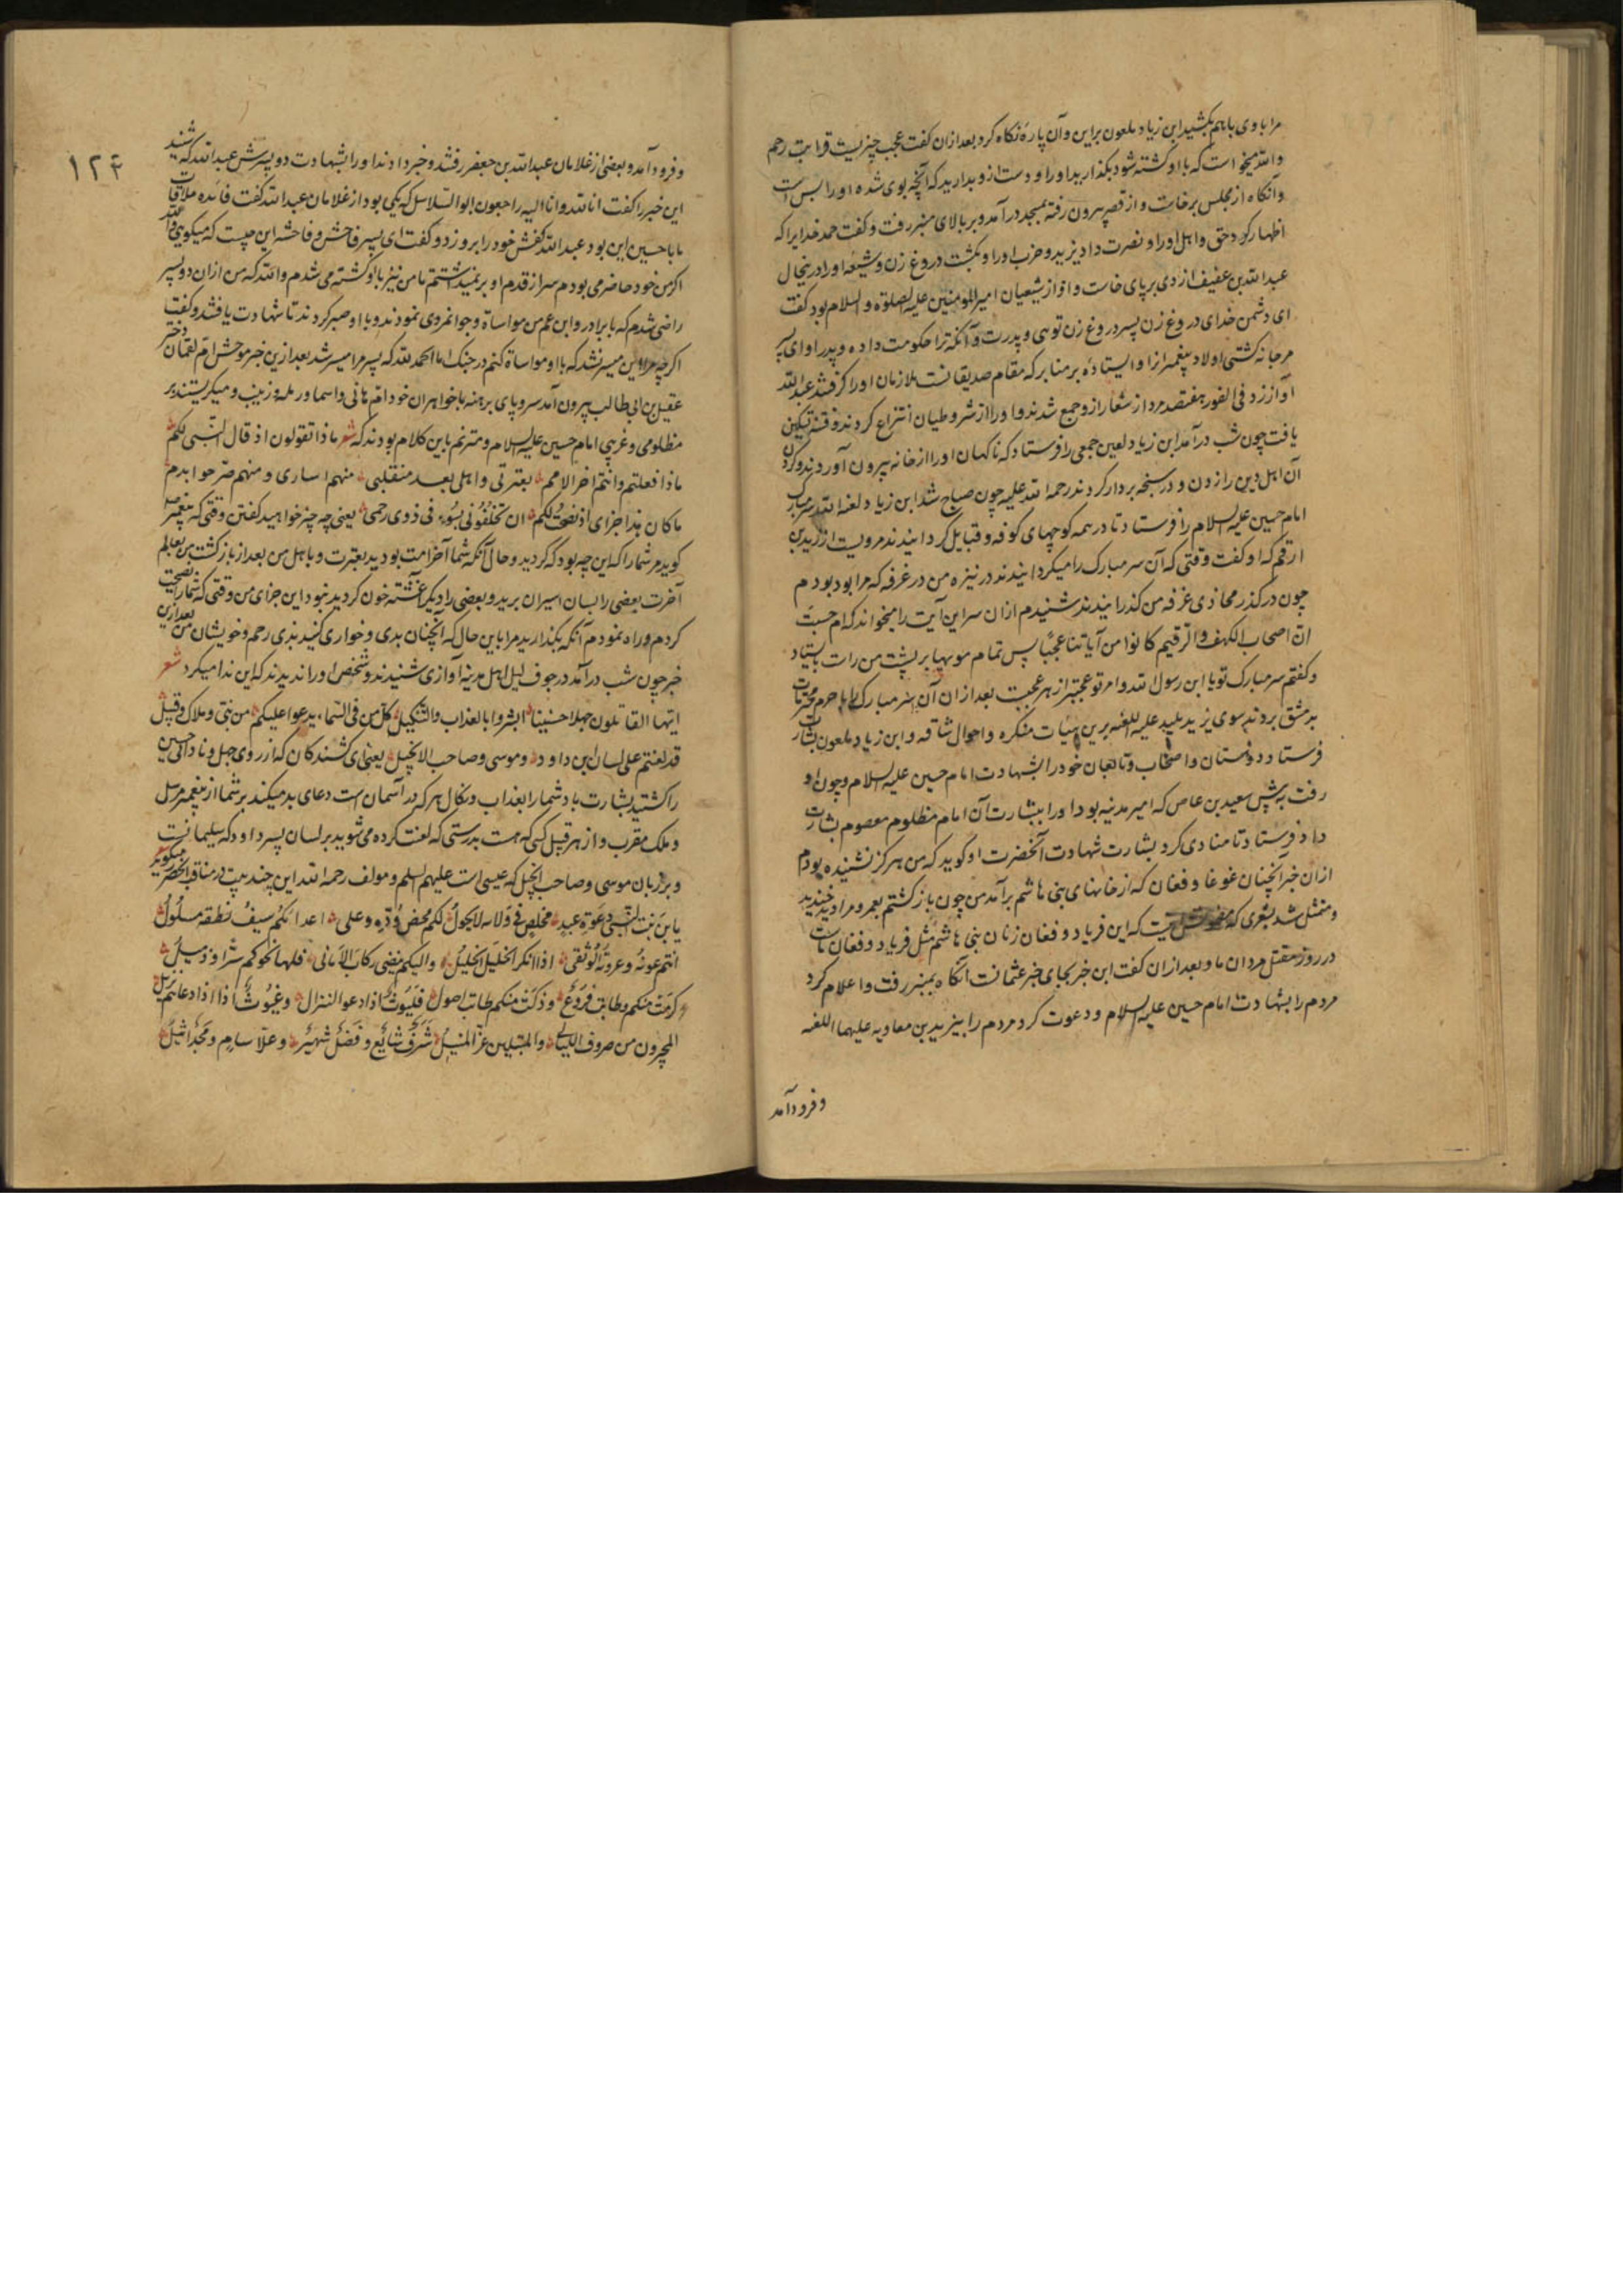 مرا با وی باهم بکشید ابن زیاد ملعون براین وآن پاره نکاه کرد بعد ازان کفت عجب چیزیست قرابت رحم
والله میخواست که با او کشته شود بکذارید اورا و دست ازو بدارید که آنچه بوی شده اورا بس است
وآنکاه از مجلس برخاست و از قصر بیرون رفته بمسجد درآمد و بر بالای منبر رفت و کفت حمد خدایرا که
اظهار کرد حق واهل اورا و نصرت داد یزید و حزب اورا و بکشت دروغ زن وشیعه اورا درینحال
عبدالله بن عفیف ازدی برپای خاست و او از شیعیان امیرالمؤمنین علیه الصلوة والسلام بود کفت
ای دشمن خدای دروغ زن پسر دروغ زن توی و پدرت وآنکه ترا حکومت داده و پدر او ای پسر
مرجانه کشتی اولاد پیغمبر را و ایستاده بر منابر که مقام صدیقانست ملازمان اورا کرفتند عبدالله
آواز زد فی الفور هفتصد مرد از شعار ازو جمع شدند و اورا از شروطیان انتزاع کردند و فتنه تسکین
یافت چون شب درآمد ابن زیاد لعین جمعی را فرستاد که ناکهان اورا از خانه بیرون آوردند و کردن
آن اهل دین را زدن و در سبخه بردار کردند رحمة الله علیه چون صباح شد ابن زیاد لعنه الله سر مبارک
امام حسین علیه السلام را فرستاد تا در همه کوچهای کوفه و قبایل کردانیدند مرویست از زید بن
ارقم که او کفت وقتی که آن سر مبارک را میکردانیدند در نیزه من در غرفه که مرا بود بودم
چون در کذر محاذی غرفه من کذرانیدند شنیدم ازان سر این آیت را میخواند که ام حسبت
ان اصحاب الکهف والرقیم کانوا من آیاتنا عجبا پس تمام مویها بر پشت من راست بایستاد
وکفتم سر مبارک تو یا ابن رسول الله وامر تو عجبتر از هر عجبیت بعد ازان آن سر مبارک را با حرم محترمات
بدمشق بردند سوی یزید پلید علیه اللعنه برین هیأت منکره واحوال شاقه وابن زیاد ملعون بشارت
فرستاد دوستان واصحاب وتابعان خود را بشهادت امام حسین علیه السلام و چون او
رفت به پیش سعید بن عاص که امیر مدینه بود اورا ببشارت آن امام مظلوم معصوم بشارت
داد فرستاد تا منادی کرد بشارت شهادت آنحضرت او کوید که من هرکز نشنیده بودم
ازان خبر آنچنان غوغا وفغان که از خانهای بنی هاشم برآمد من چون بازکشتم بعمرو مرا دید خندید
ومتمثل شد بشعری که که این فریاد و فغان زنان بنی هاشم مثل فریاد و فغان ماست
در روز مقتل مردان ما و بعد ازان کفت این خبر بجای خبر عثمانست آنکاه بمنبر رفت واعلام کرد
مردم را بشهادت امام حسین علیه السلام و دعوت کرد مردم را به یزید بن معاویه علیهما اللعنه
وفرودآمد
۱۲۴
وفرودآمد و بعضی از غلامان عبدالله بن جعفر رفتند و خبر دادند اورا بشهادت دو پسرش عبدالله که شنید
این خبر را کفت انا لله وانا الیه راجعون ابوالسلاسل که یکی بود از غلامان عبدالله کفت فائده ملاقات
ما با حسین این بود عبدالله کفش خود را برو زد و کفت ای پسر فاحش و فاحشه این چیست که میکویی والله
اکر من خود حاضر می بودم سر از قدم او برنمیداشتم تا من نیز با او کشته می شدم والله که من ازان دو پسر
راضی شدم که با برادر وابن عم من مواساة وجوانمردی نمودند و با او صبر کردند تا شهادت یافتند و کفت
اکرچه مرا این میسر نشد که با او مواساة کنم در جنک اما الحمد لله که پسر مرا میسر شد بعد ازین خبر موحش ام لقمان دختر
عقیل بن ابی طالب بیرون آمد سر و پای برهنه با خواهران خود ام هانی واسما ورمله وزینب ومیکریستند بر
مظلومی و غریبی امام حسین علیه السلام و مترنم باین کلام بودند که شعر ماذا تقولون اذ قال النبی لکم
ماذا فعلتم وانتم اخر الامم بعترتی و اهلی بعد منقلبی منهم اساری و منهم ضرجوا بدم
ما کان هذا جزای اذ نصحت لکم ان تخلفونی بسوء فی ذوی رحمی یعنی چه چیز خواهید کفتن وقتی که پیغمبر
کوید مر شما را که این چه بود که کردید وحال آنکه شما آخر امت بودید بعترت و باهل من بعد از بازکشت من بعالم
آخرت بعضی را بسان اسیران برید و بعضی را دیکر آغشته خون کردید نبود این جزای من وقتی که شما را نصیحت
کردم و راه نمودم آنکه بکذارید مرا باین حال که آنچنان بدی وخواری کنید بذی رحم وخویشان من بعد ازین
خبر چون شب درآمد در جوف لیل اهل مدینه آوازی شنیدند و شخص اورا ندیدند که این ندا میکرد شعر
ایها القاتلون جهلا حسینا ابشروا بالعذاب والتنکیل کل من فی السماء یدعو علیکم من نبی وملاک وقبیل
قد لعنتم علی لسان ابن داود وموسی وصاحب الانجیل یعنی ای کشندکان که از روی جهل و نادانی حسین
را کشتید بشارت باد شما را بعذاب ونکال هرکه در آسمان است دعای بد میکند بر شما از پیغمبر مرسل
وملک مقرب و از هر قبیل کسی که هست بدرستی که لعنت کرده می شوید بر لسان پسر داود که سلیمانست
وبر زبان موسی وصاحب انجیل که عیسی است علیهم السلم ومولف رحمه الله این چند بیت در مناقب آنحضرت میکوید شعر
یا بن بنت النبی دعوة عبد مخلص فی ولائه لا یحول لکم محض وده وعلی اعدائکم سیف نطقه مسلول
انتم عونه وعروته الوثقی اذا انکر الخلیل الخلیل والیکم ینضی رکاب الامانی فلها نحوکم سری وذمیل
کرمت منکم وطابت فروع وزکت منکم وطابت اصول فلیوث اذا دعوا لنزال وغیوث اذا دعاهم نزیل
المجیرون من صروف اللیالی والمنیلین عز المنیل شرف شایع وفضل شهیر وعلا سام ومجد اثیل